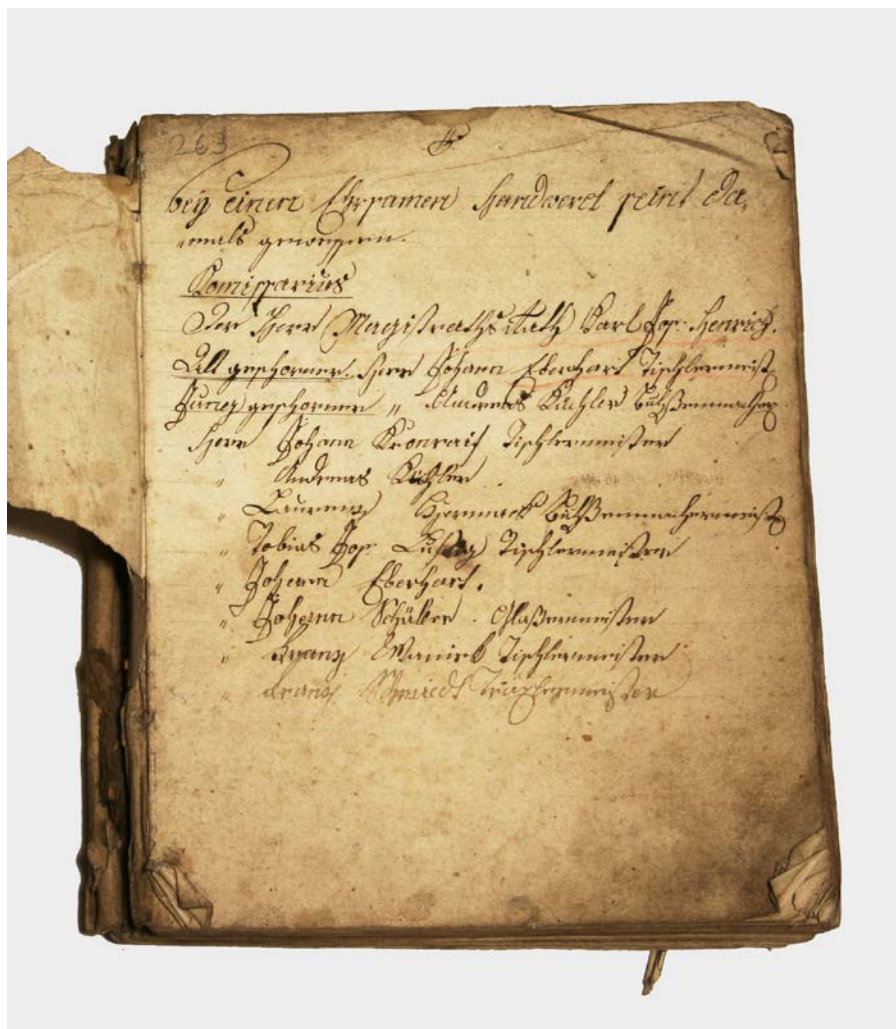 263
bey einen Ehrsamen Handwerck seint da,
mals gewessen.
Komissarius
Der Herr Magistraths Rath Karl Jos: Henrich.
Alt geschorner. Herr Johann Eberhart Tischlermeist
Jung geschorner „ Andreas Kuchler Büchßenmacher
Herr Johann Kronraif Tischlermeister
„ Andreas Kuchler
„ Laurenz Büchßenmachermeist
„ Tobias Jos: Tischlermeister
„ Johann Eberhart.
„ Johann Schüller. Glaßermeister
„ Franz Wanirek Tischlermeister
„ Franz Schmiedt